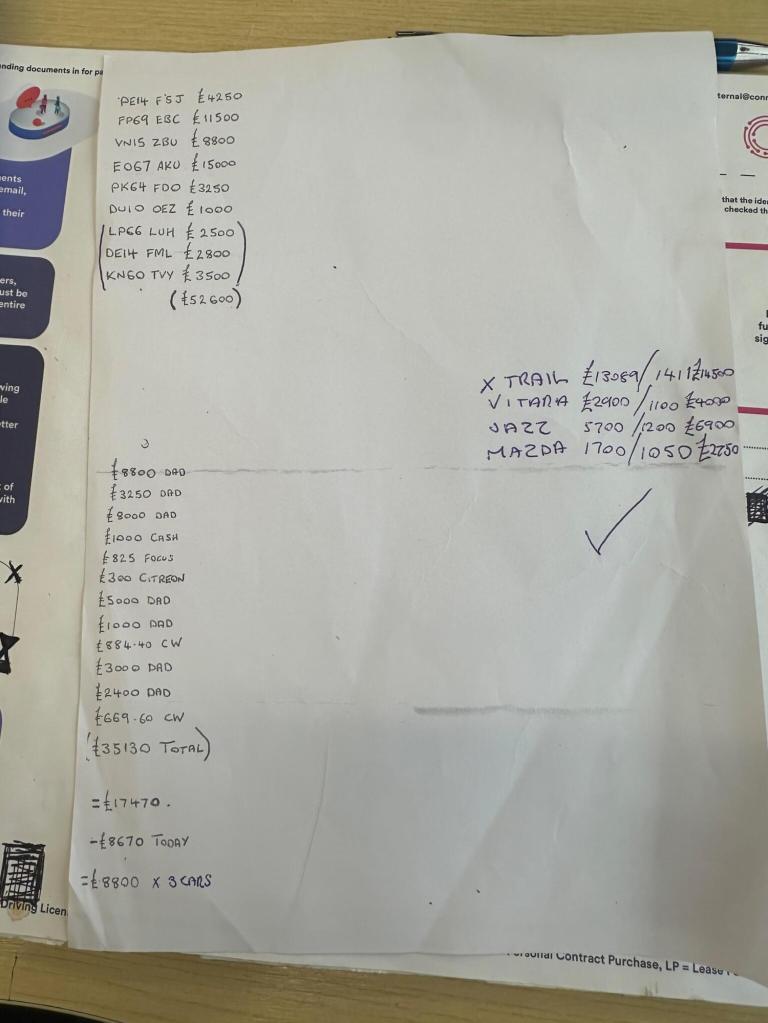 nding documents in for pa
DE14 FSJ £4250
FP69 EBC £11500
VN15 ZBU £8800
EO67 AKU £15000
PK64 FDO £3250
DU10 OEZ £1000
(LP66 LUH £2500)
DE14 FML £2800
KN60 TVY £3500
(£52600)
ents
email,
their
ers,
ust be
entire
wing
le
tter
of
with
ternal@conn
that the iden
checked th
fu
sig
X TRAIL £13089/1411 £14500
VITARA £2900/1100 £4000
JAZZ 5700/1200 £6900
MAZDA 1700/1050 £2750
£8800 DAD
£3250 DAD
£8000 DAD
£1000 CASH
£825 FOCUS
£300 CITREON
£5000 DAD
£1000 DAD
£884.40 CW
£3000 DAD
£2400 DAD
£669.60 CW
(£35130 TOTAL)
=£17470.
-£8670 TODAY
=£8800 x 3 CARS
Driving Licen
Personal Contract Purchase, LP = Lease